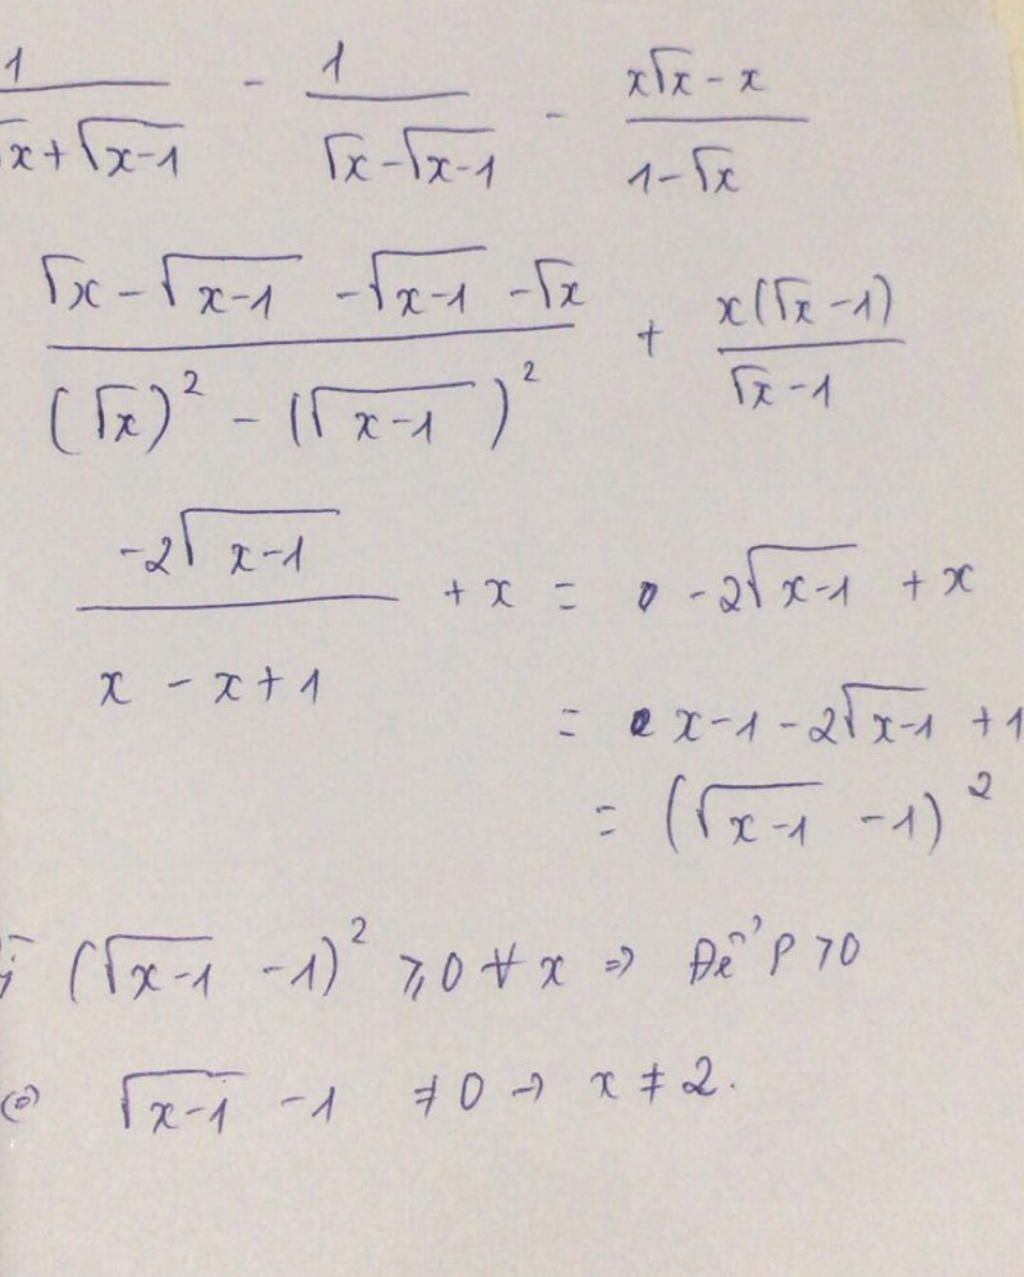 1/(√x + √(x-1)) - 1/(√x - √(x-1)) - (x√x - x)/(1 - √x)
(√x - √(x-1) - √(x-1) - √x)/((√x)² - (√(x-1))²) + x(√x - 1)/(√x - 1)
(-2√(x-1))/(x - x + 1) + x = -2√(x-1) + x
= x - 1 - 2√(x-1) + 1
= (√(x-1) - 1)²
(√(x-1) - 1)² ⩾ 0 ∀ x ⇒ Để P > 0
⇔ √(x-1) - 1 ≠ 0 → x ≠ 2.